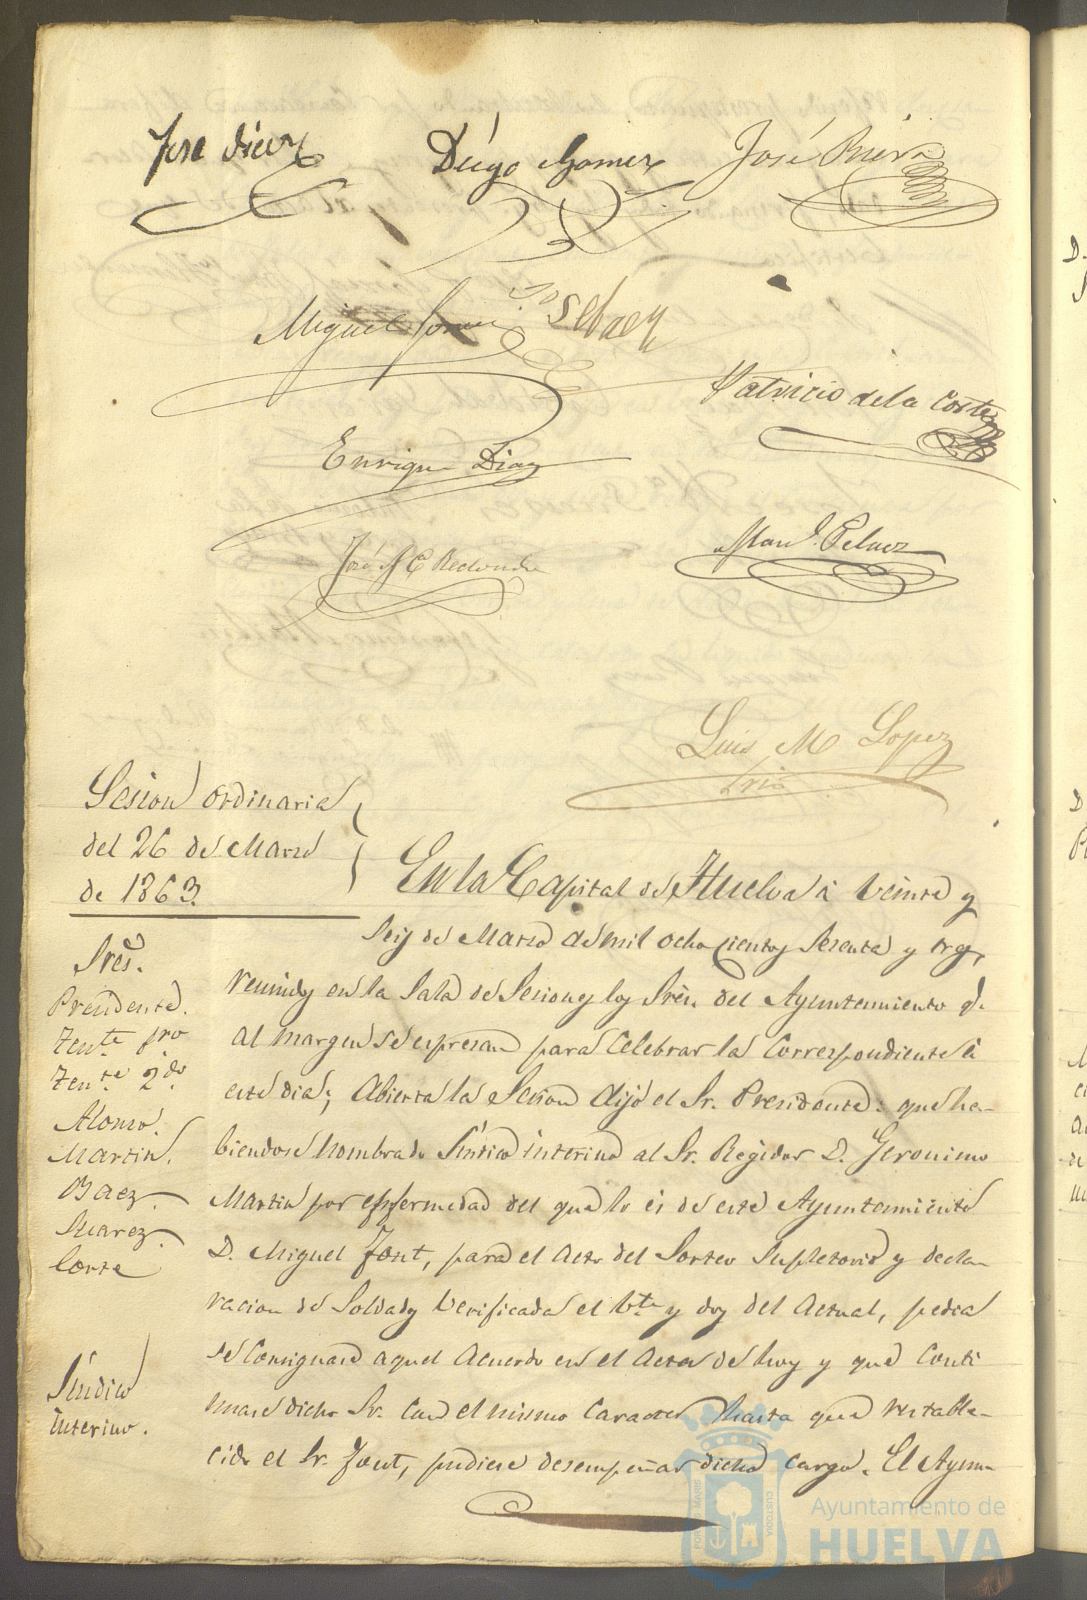 Jose Diaz
Diego Gomez
José Riera
Miguel
Jose Baez
Patricio de la Corte
Enrique Diaz
José Redondo
Manl. Pelaez
Luis M Lopez
Srio
Sesion ordinaria
del 26 de Marzo
de 1863.
Sres.
Presidente.
Tente. pro
Tente 2do.
Alonso.
Martin.
Baez.
Suarez.
Corte
Síndico
interino.
En la Capital de Huelva á veinte y
seis de Marzo de mil ochocientos sesenta y tres,
reunidos en la Sala de Sesiones los Sres. del Ayuntamiento q.
al margen se expresan para celebrar la correspondiente á
este dia; Abierta la Sesion dijo el Sr. Presidente: que ha-
biendose nombrado Síndico interino al Sr. Regidor D. Geronimo
Martin por enfermedad del que lo es de este Ayuntamiento
D. Miguel Font, para el acto del Sorteo Supletorio y decla-
racion de Soldados verificada el bte y dos del actual, pedia
se consignase aquel acuerdo en el acta de hoy y que conti
nuase dicho Sr. con el mismo caracter hasta que restable-
cido el Sr. Font, pudiese desempeñar dicho cargo. El Ayun-
PORTUS MARIS
CUSTODIA
Ayuntamiento de
HUELVA